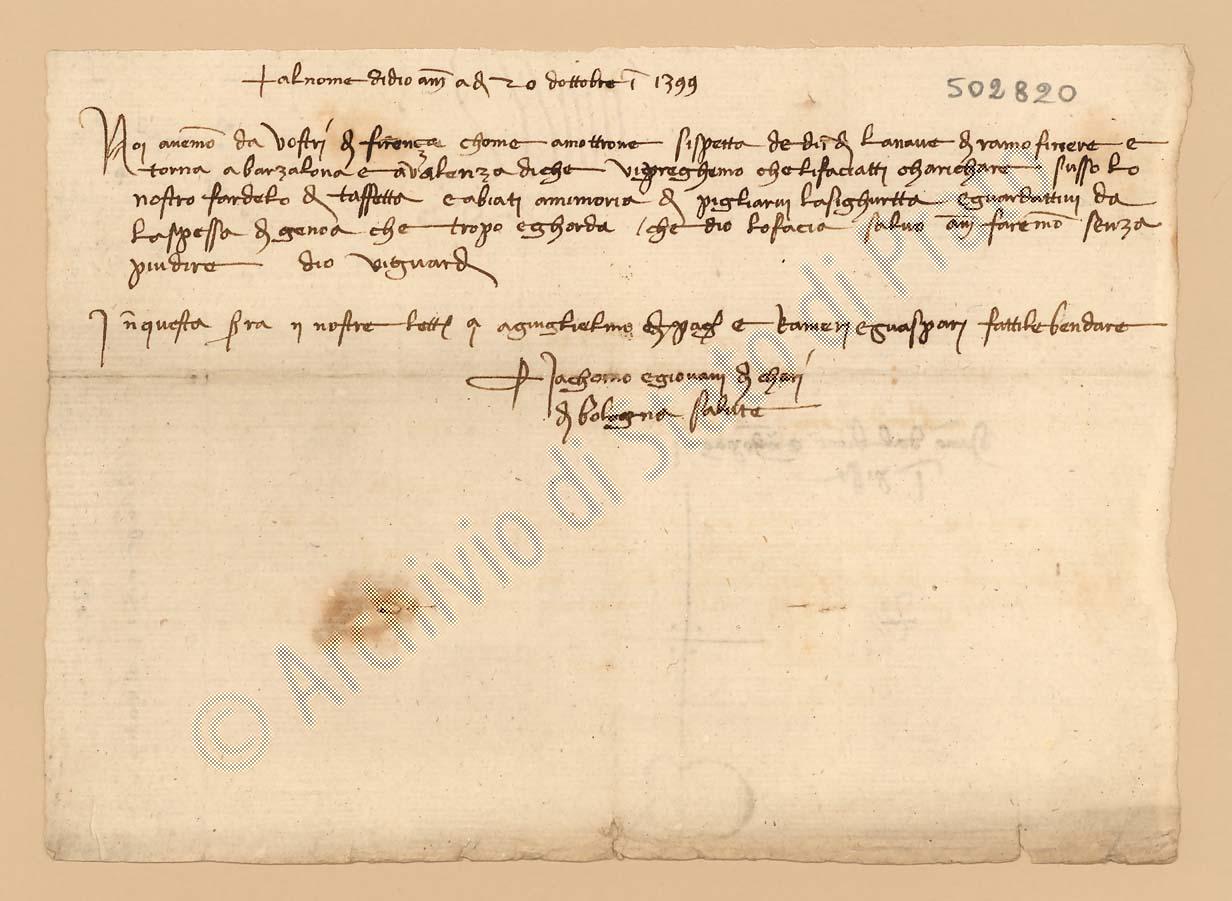 + al nome di dio am a di 20 dottobre 1399
502820
Noi avemo da vostri di firenze chome a mottrone si spetta de di la nave di ramo e
torna a barzalona e a valenza di che vi preghemo che li faciatti charichare susso lo
nostro fardelo di taffetta e abiati a mimoria di pigliarvi la sighurtta e guardattivi da
la spessa di genoa che tropo e ghorda che dio lo facia salvo am faremo senza
piu dire dio vi guardi
In questa sera ii nostre lett a guiglielmo e rameri e guaspari fattile ben dare
Jachomo e giovani di
di bologna salute
© Archivio di Stato di Prato